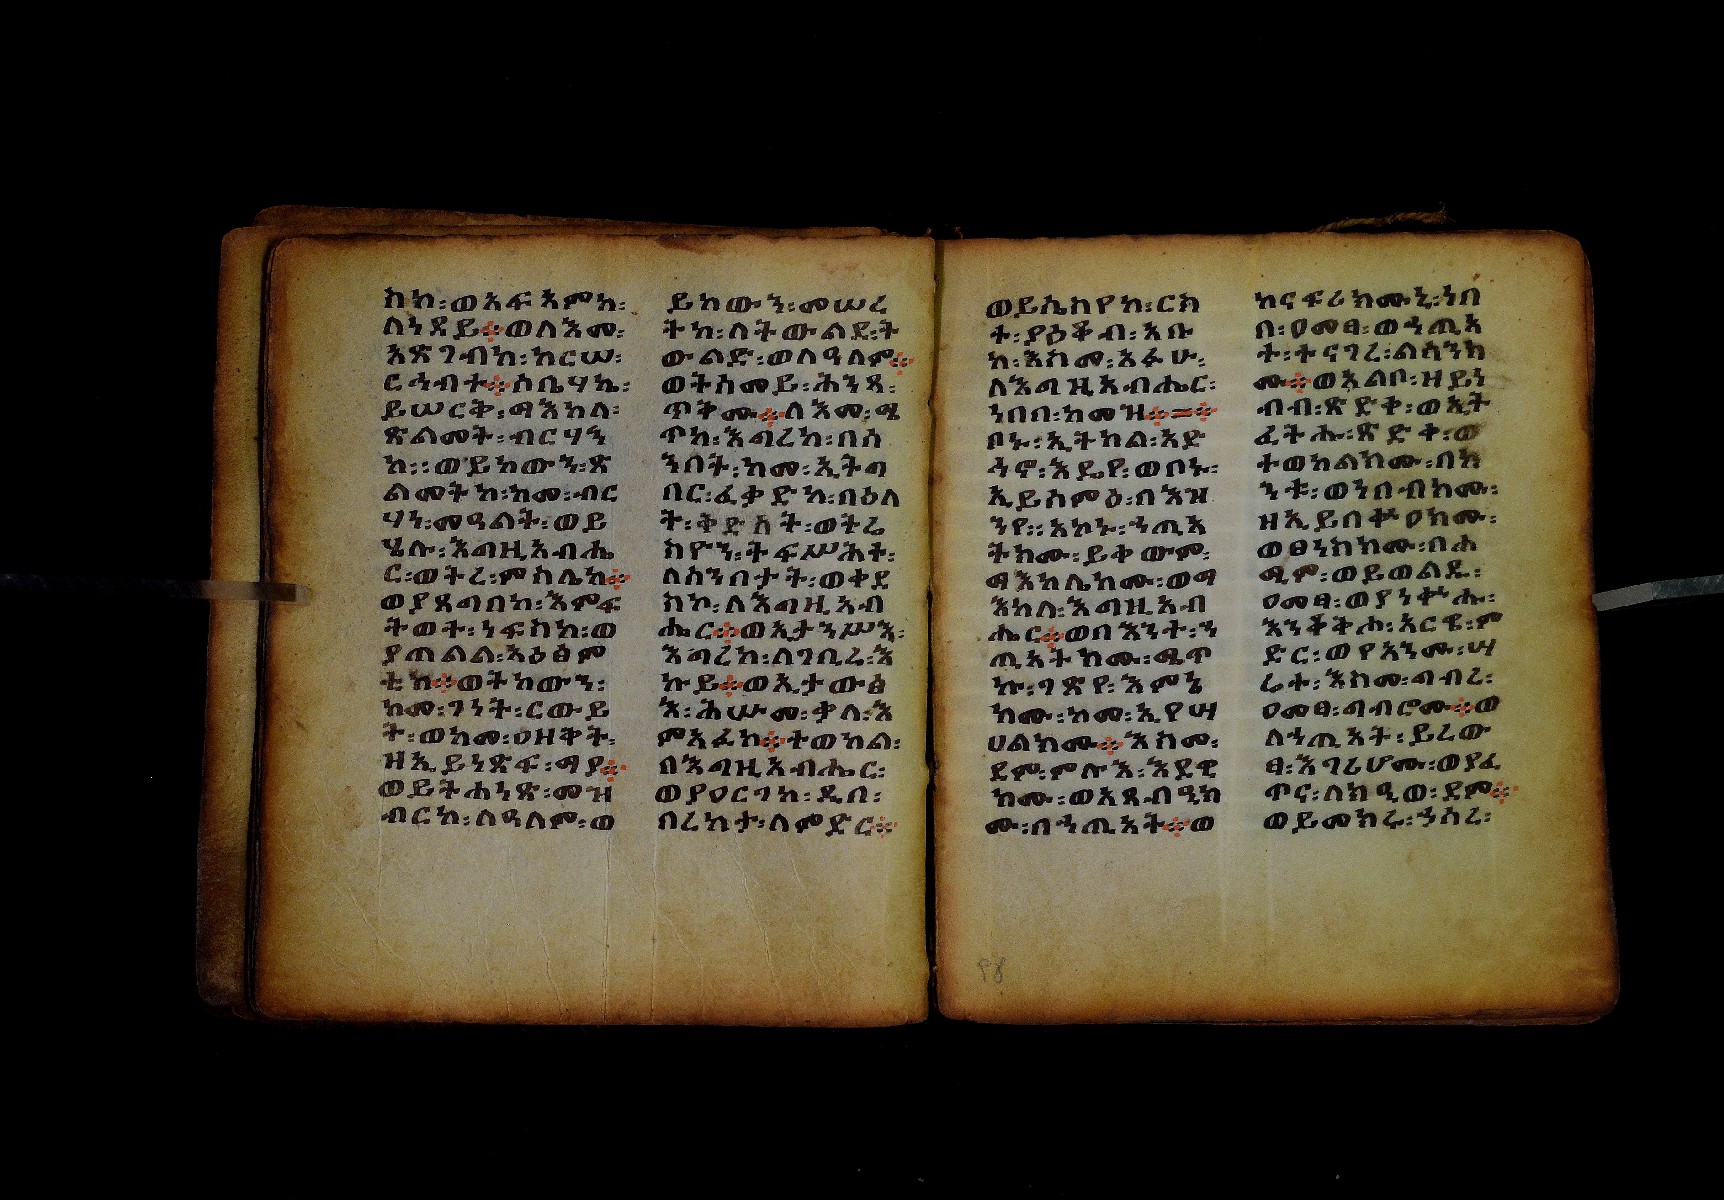 ክከ፡ወእፍእምከ፡
ለነዳይ፨ወለእመ፡
አጽገብከ፡ከርሠ፡
ርኅብተ፨ሶቤሃኬ፡
ይሠርቅ፡ማእከለ፡
ጽልመት፡ብርሃን
ከ፡፡ወይከውን፡ጽ
ልመትከ፡ከመ፡ብር
ሃነ፡መዓልት፡ወይ
ሄሉ፡እግዚአብሔ
ር፡ወትረ፡ምስሌከ፨
ወያጸግበከ፡እምፍ
ትወት፡ነፍስከ፡ወ
ያጠልል፡አዕፅም
ቲከ፨ወትከውን፡
ከመ፡ገነት፡ርውይ
ት፡ወከመ፡ዐዘቅት፡
ዘኢይነጽፍ፡ማያ፨
ወይትሐነጽ፡መዝ
ብርከ፡ለዓለም፡ወ
ይከውን፡መሠረ
ትከ፡ለትውልደ፡ት
ውልድ፡ወለዓለም፨
ወትሰመይ፡ሕንጻ፡
ጥቅሙ፨ለእመ፡ሜ
ጥከ፡እግረከ፡በሰ
ንበት፡ከመ፡ኢትግ
በር፡ፈቃድከ፡በዕለ
ት፡ቅድስት፡ወትሬ
ስዮን፡ትፍሥሕት፡
ለሰንበታት፡ወቀደ
ስከ፡ለእግዚአብ
ሔር፨ወኢታንሥእ፡
እግረከ፡ለገቢረ፡እ
ኩይ፨ወኢታውፅ
እ፡ሕሡመ፡ቃለ፡እ
ምአፈከ፨ተወከል፡
በእግዚአብሔር፡
ወያዐርገከ፡ዲበ፡
በረከታ፡ለምድር፨
ወይሴስየከ፡ርስ
ተ፡ያዕቆብ፡አቡ
ከ፡እስመ፡አፉሁ፡
ለእግዚአብሔር፡
ነበበ፡ከመዝ፨=፨
ቦኑ፡ኢትክል፡አድ
ኅኖ፡እዴየ፡ወቦኑ፡
ኢይሰምዕ፡በእዝ
ንየ፡፡አኮኑ፡ኀጢአ
ትክሙ፡ይቀውም፡
ማእከሌክሙ፡ወማ
እከለ፡እግዚአብ
ሔር፨ወበእንተ፡ኀ
ጢአትክሙ፡ሜጥ
ኩ፡ገጽየ፡እምኔ
ክሙ፡ከመ፡ኢየሣ
ሀልክሙ፨እስመ፡
ደም፡ምሉእ፡እደዊ
ክሙ፡ወአጻብዒክ
ሙ፡በኀጢአት፨ወ
ከናፍሪክሙኒ፡ነበ
በ፡ዐመፃ፡ወኀጢአ
ተ፡ተናገረ፡ልሳንክ
ሙ፨ወአልቦ፡ዘይነ
ብብ፡ጽድቀ፡ወኢት
ፈትሑ፡ጽድቀ፡ወ
ተወከልክሙ፡በከ
ንቱ፡ወንበብክሙ፡
ዘኢይበቍዐክሙ፡
ወፀነስክሙ፡በሐ
ማም፡ወይወልዱ፡
ዐመፃ፡ወያነቍሑ፡
እንቆቅሖ፡አርዌ፡ም
ድር፡ወየአንሙ፡ሣ
ሬተ፡እስመ፡ግብረ፡
ዐመፃ፡ግብሮሙ፨ወ
ለኀጢአት፡ይረው
ፃ፡እገሪሆሙ፡ወያፈ
ጥኑ፡ለክዒወ፡ደም፨
ወይመክሩ፡ኀሳረ፡